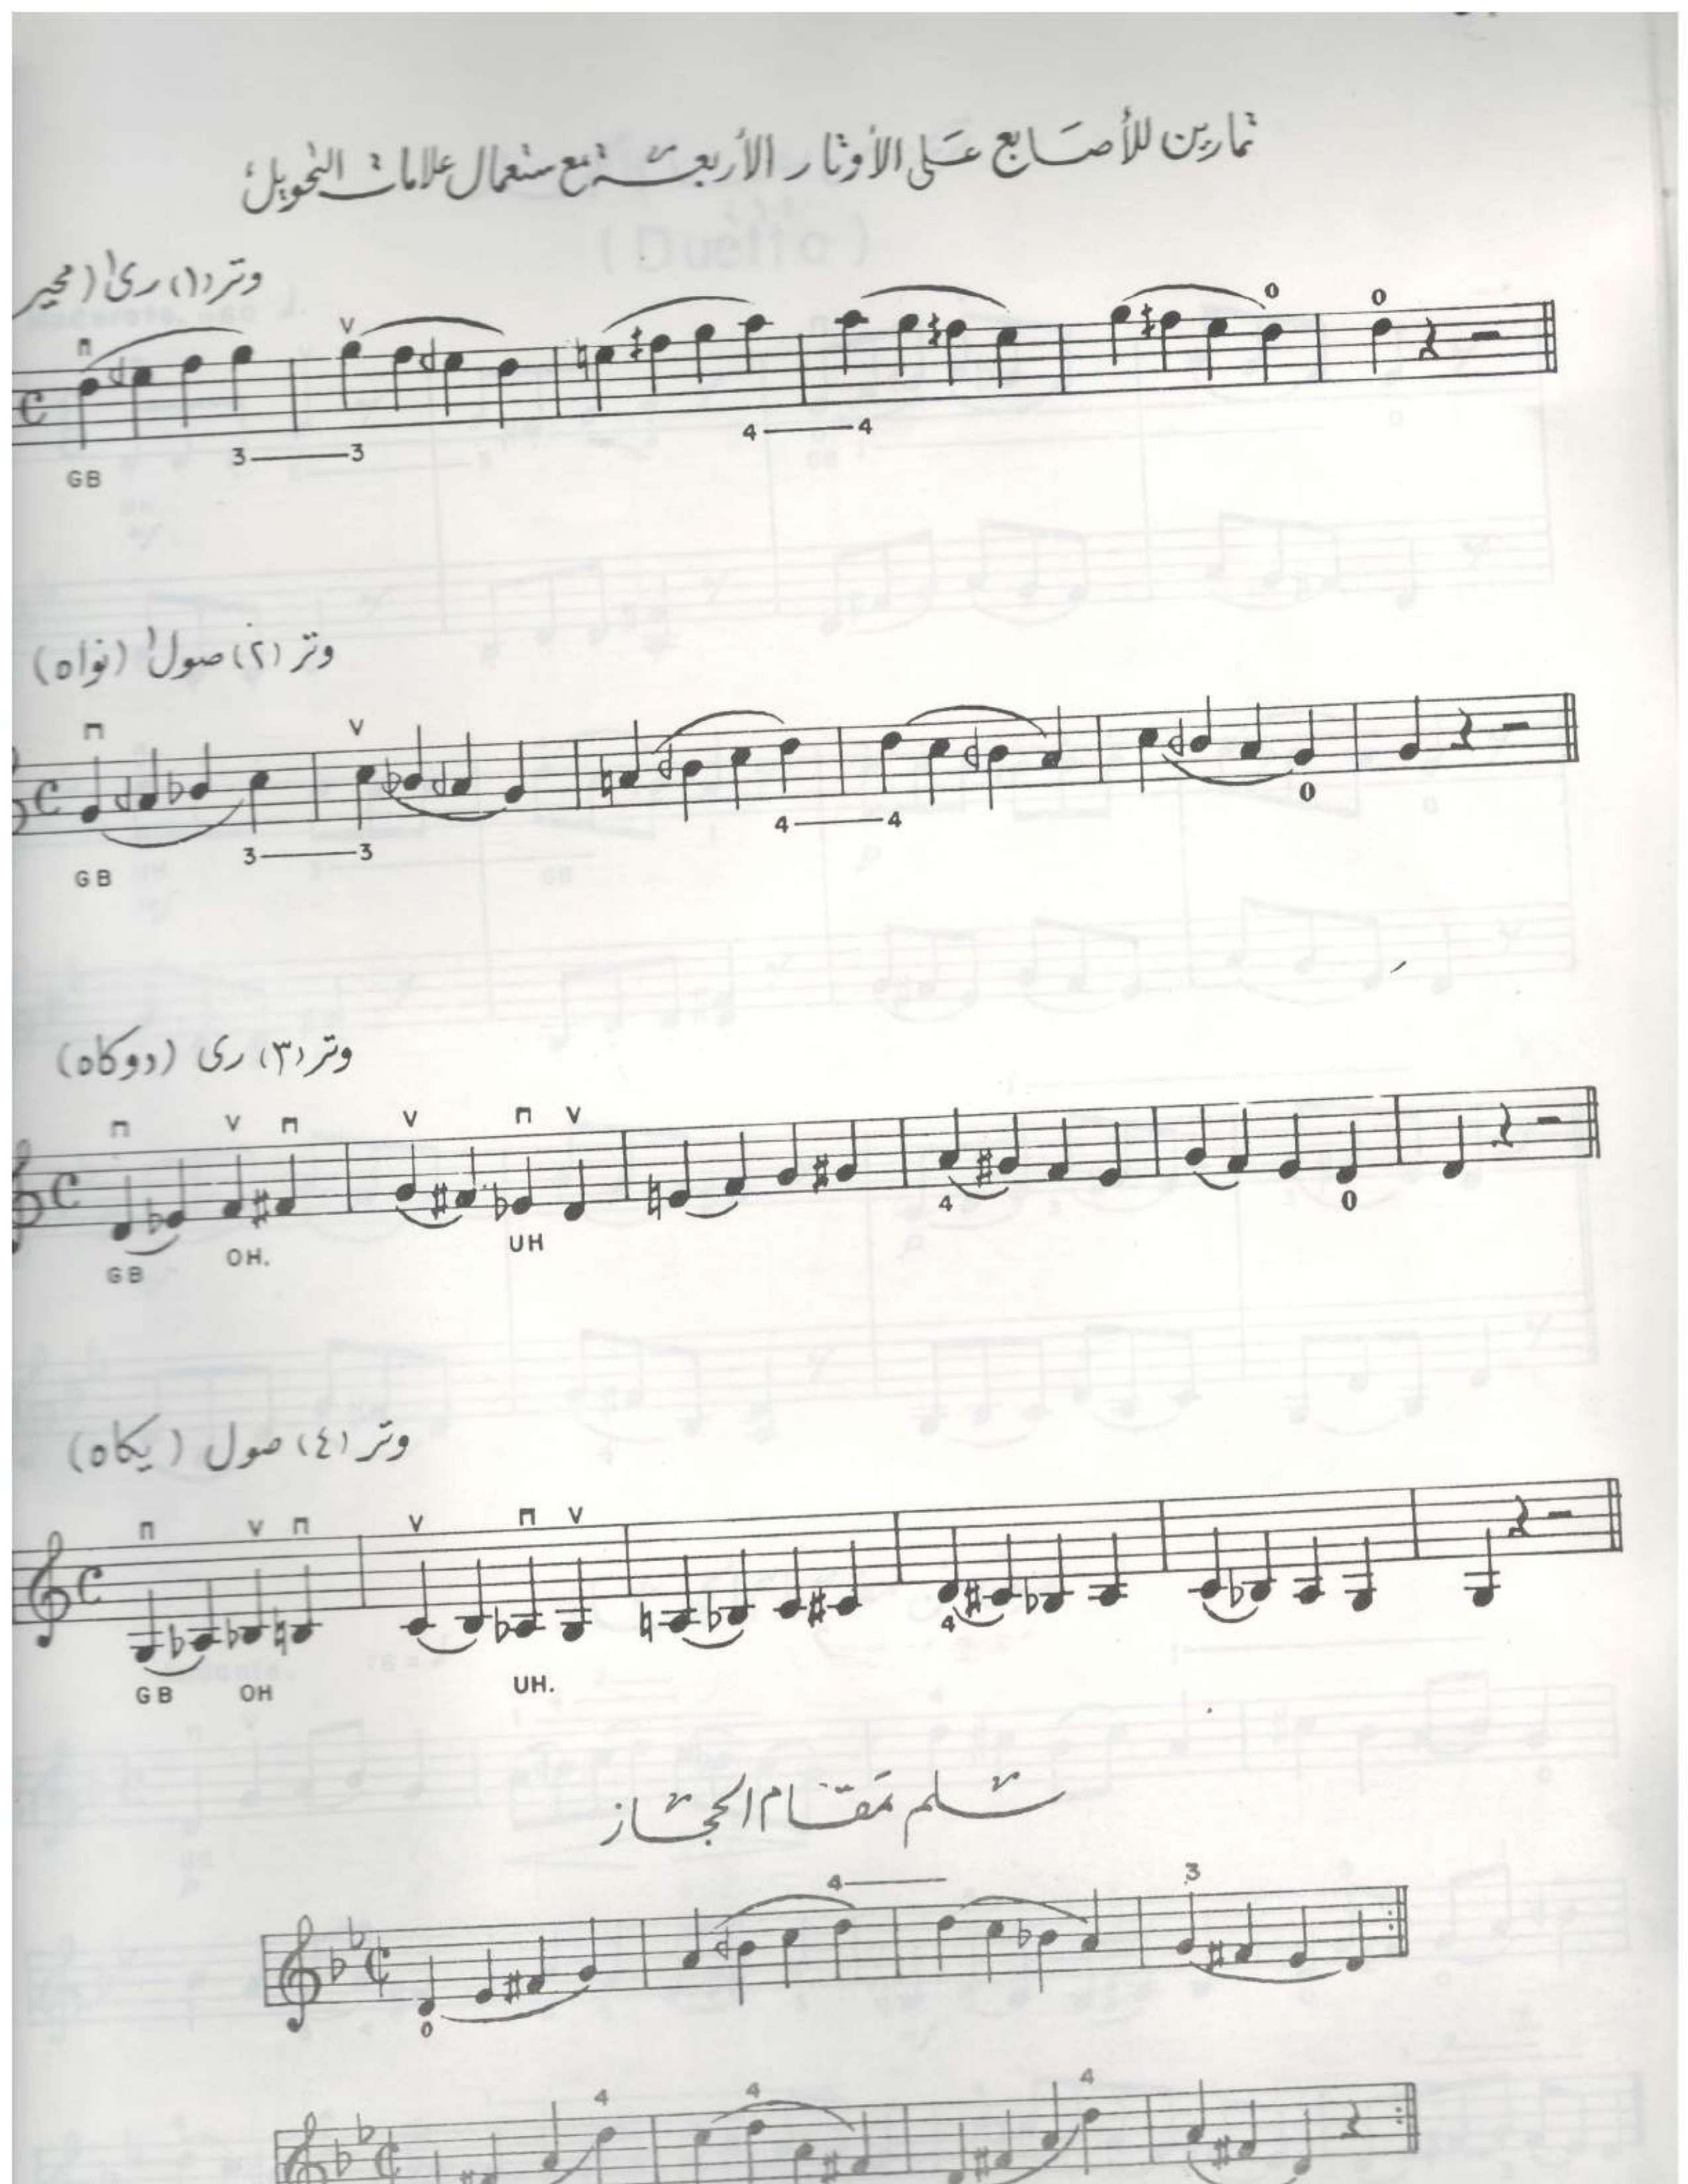 تمارين للأصابع على الأوتار الأربعة مع ستعمال علامات التحويل
وتر (١) رى١ (محير
3 3 4 4
GB
وتر (٢) صول١ (نواه)
3 3 4 4
GB
وتر (٣) رى (دوكاه)
4 0
GB OH. UH
وتر (٤) صول (يكاه)
4
GB OH UH.
سلم مقام الحجاز
4 3
0
4 4 4